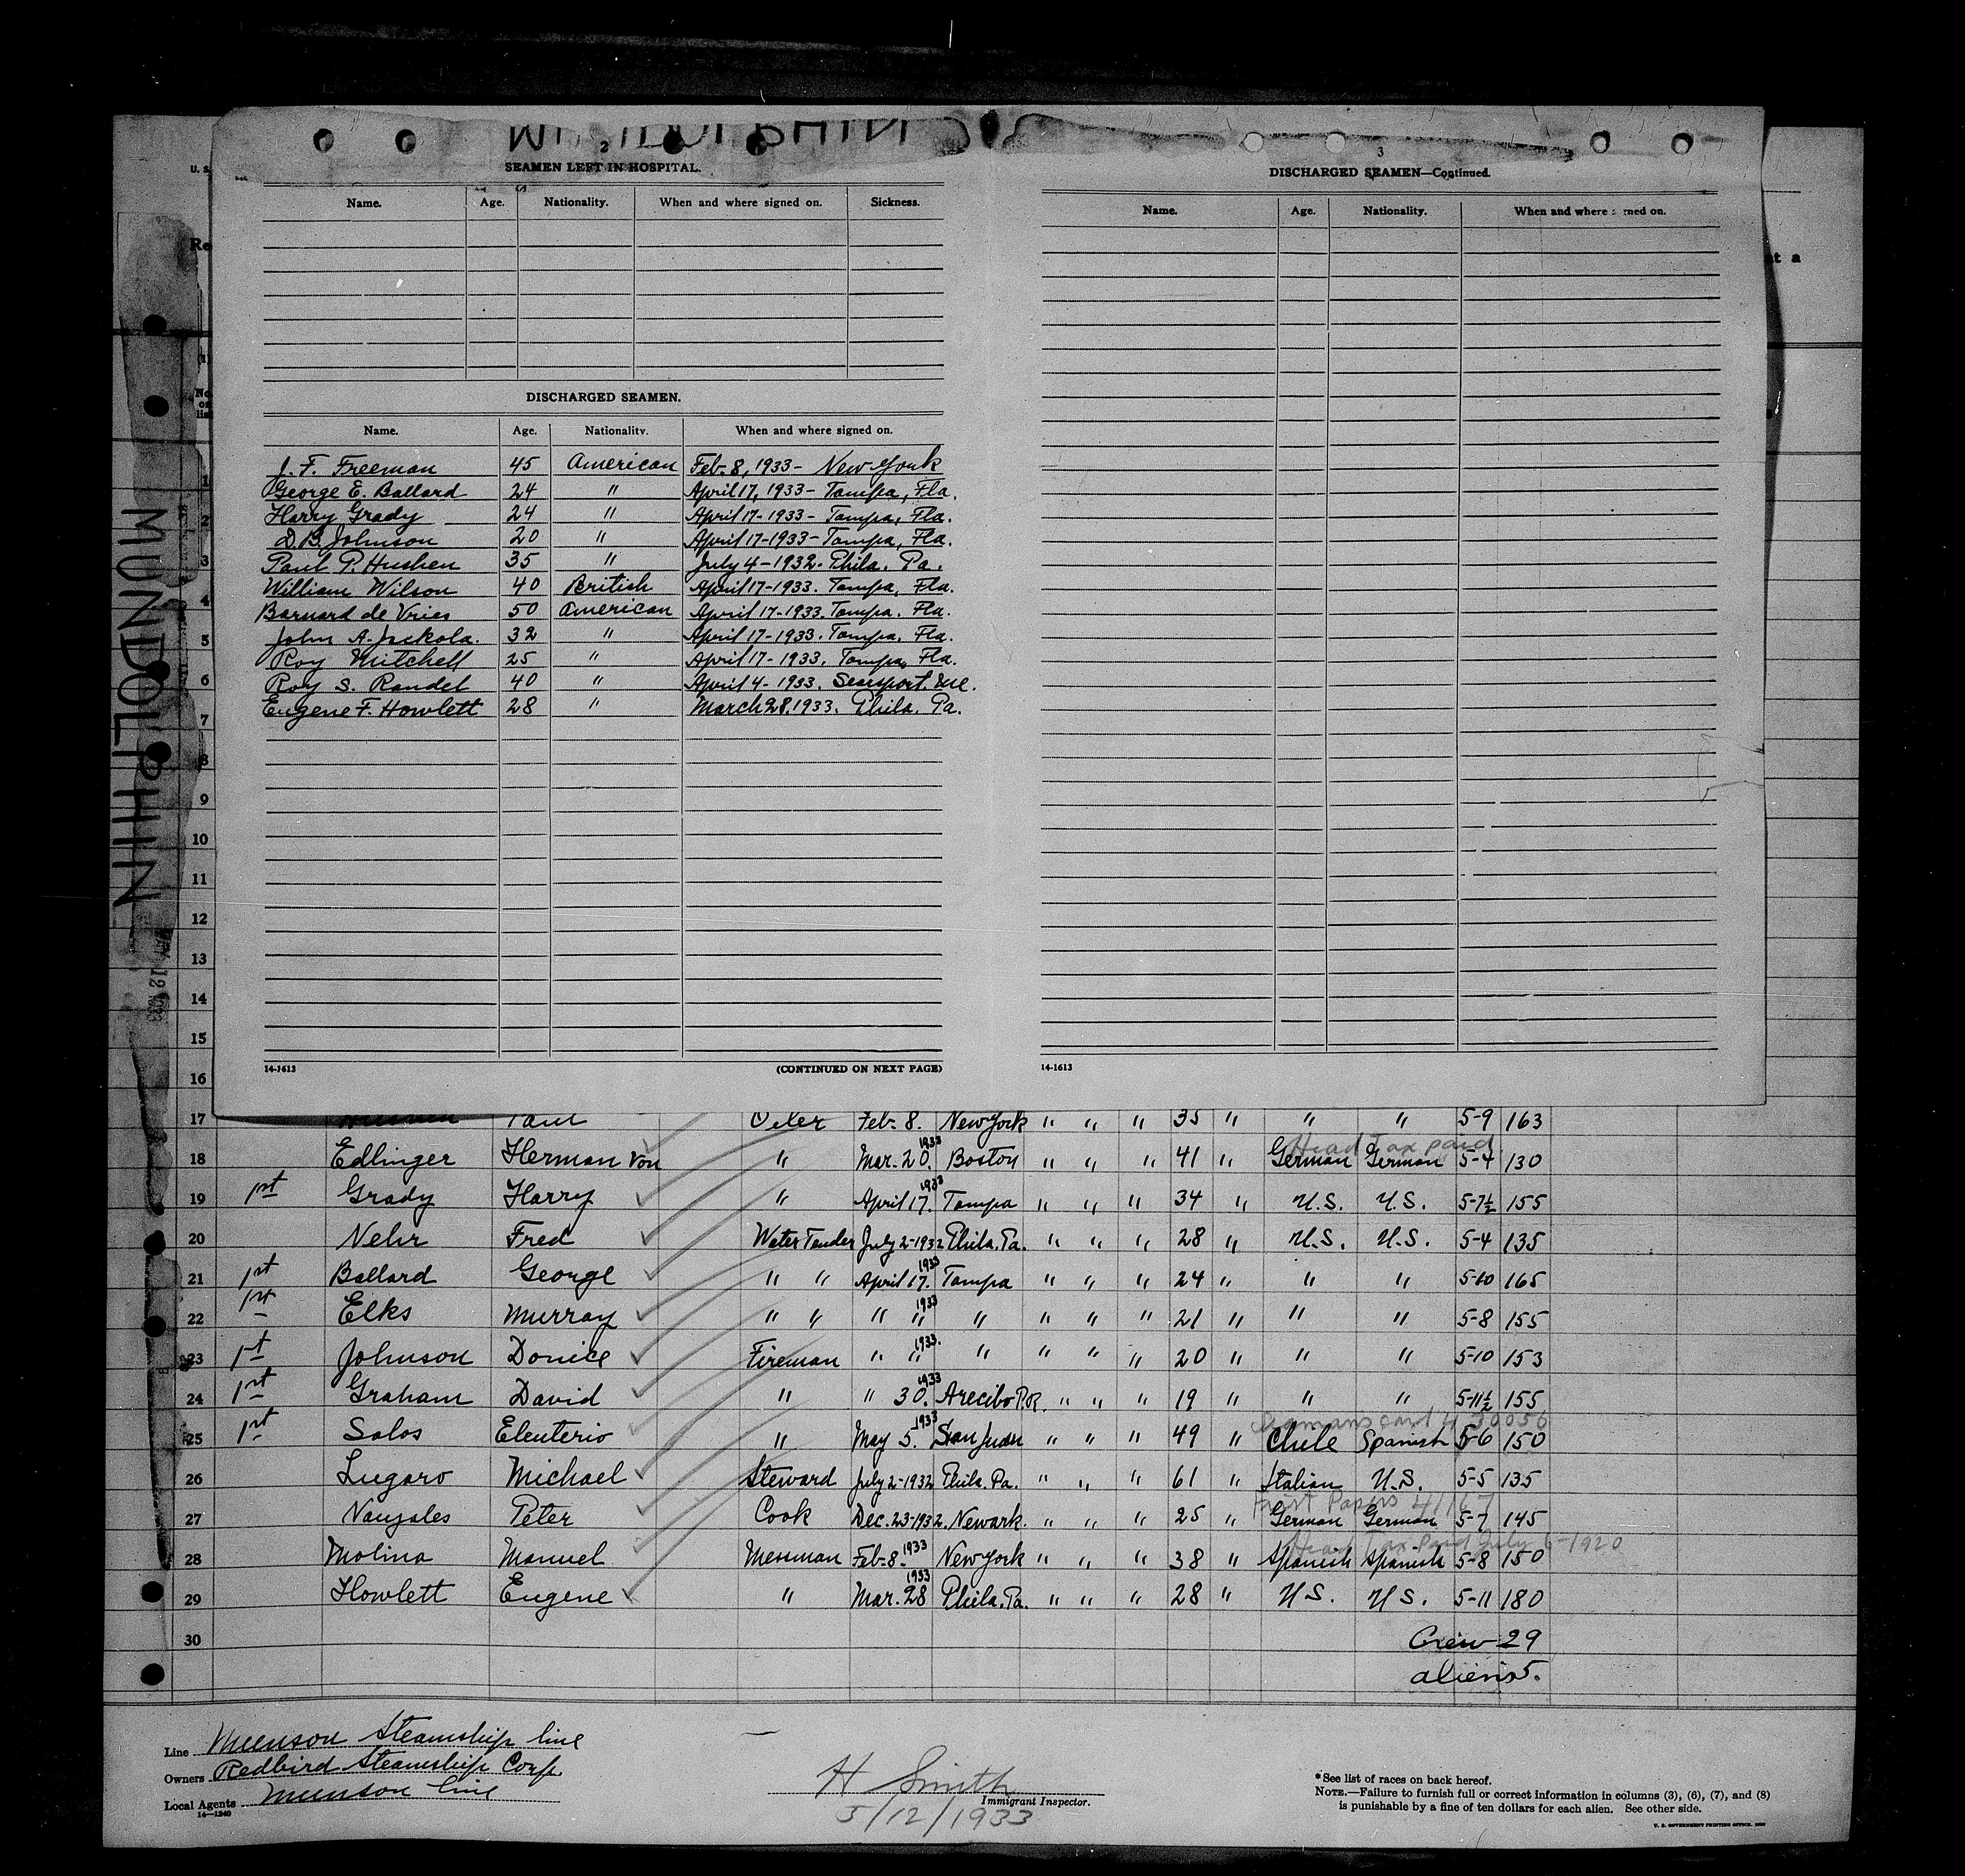 MUNDOLPHIN
2
SEAMEN LEFT IN HOSPITAL.
Name. Age. Nationality. When and where signed on. Sickness.
DISCHARGED SEAMEN.
Name. Age. Nationality. When and where signed on.
J. F. Freeman 45 American Feb. 8, 1933 - New York
George E. Ballard 24 " April 17, 1933 - Tampa, Fla.
Harry Grady 24 " April 17 - 1933 - Tampa, Fla.
D. B. Johnson 20 " April 17 - 1933 - Tampa, Fla.
Paul P. Hushen 35 " July 4 - 1932. Phila. Pa.
William Wilson 40 British April 17 - 1933. Tampa, Fla.
Barnard de Vries 50 American April 17 - 1933. Tampa, Fla.
John A. Jackola. 32 " April 17 - 1933. Tampa, Fla.
Roy Mitchell 25 " April 17 - 1933. Tampa, Fla.
Roy S. Randel 40 " April 4 - 1933. Searsport, Me.
Eugene F. Howlett 28 " March 28, 1933. Phila. Pa.
14-1613 (CONTINUED ON NEXT PAGE)
3
DISCHARGED SEAMEN—Continued.
Name. Age. Nationality. When and where
14-1613
U. S.
1
2
3
4
5
6
7
8
9
10
11
12
13
14
15
16
17 Paul Oiler Feb. 8. New York " " " 35 " " " 5-9 163
Head Tax paid
18 Edlinger Herman Von " Mar. 20. 1933 Boston " " " 41 " German German 5-4 130
19 1st Grady Harry " April 17. 1933 Tampa " " " 34 " U.S. U.S. 5-7½ 155
20 Nehr Fred Water Tender July 2-1932 Phila. Pa. " " " 28 " U.S. U.S. 5-4 135
21 1st Ballard George " " April 17. 1933 Tampa " " " 24 " " " 5-10 165
22 1st Elks Murray " " " " 1933 " " " " 21 " " " 5-8 155
23 1st Johnson Donice Fireman " " 1933. " " " " 20 " " " 5-10 153
24 1st Graham David " " 30. 1933 Arecibo P.R. " " " 19 " " " 5-11½ 155
Seamans card
25 1st Salos Eleuterio " May 5. 1933 San Juan " " " 49 " Chile Spanish 5-6 150
26 Lugaro Michael Steward July 2-1932 Phila. Pa. " " " 61 " Italian U.S. 5-5 135
First Papers
27 Peter Cook Dec. 23-1932. Newark. " " " 25 " German German 5-7 145
Head Tax Paid July 6-1920
28 Molina Manuel Messman Feb. 8. 1933 New York " " " 38 " Spanish Spanish 5-8 150
29 Howlett Eugene " Mar. 28 1933 Phila. Pa. " " " 28 " U.S. U.S. 5-11 180
30 Crew 29
aliens 5.
MAY 12 1933
Line Munson Steamship line
Owners Redbird Steamship Corp.
Local Agents Munson line
14—1240
H Smith
Immigrant Inspector.
5/12/1933
*See list of races on back hereof.
NOTE.—Failure to furnish full or correct information in columns (3), (6), (7), and (8)
is punishable by a fine of ten dollars for each alien. See other side.
U. S. GOVERNMENT PRINTING OFFICE